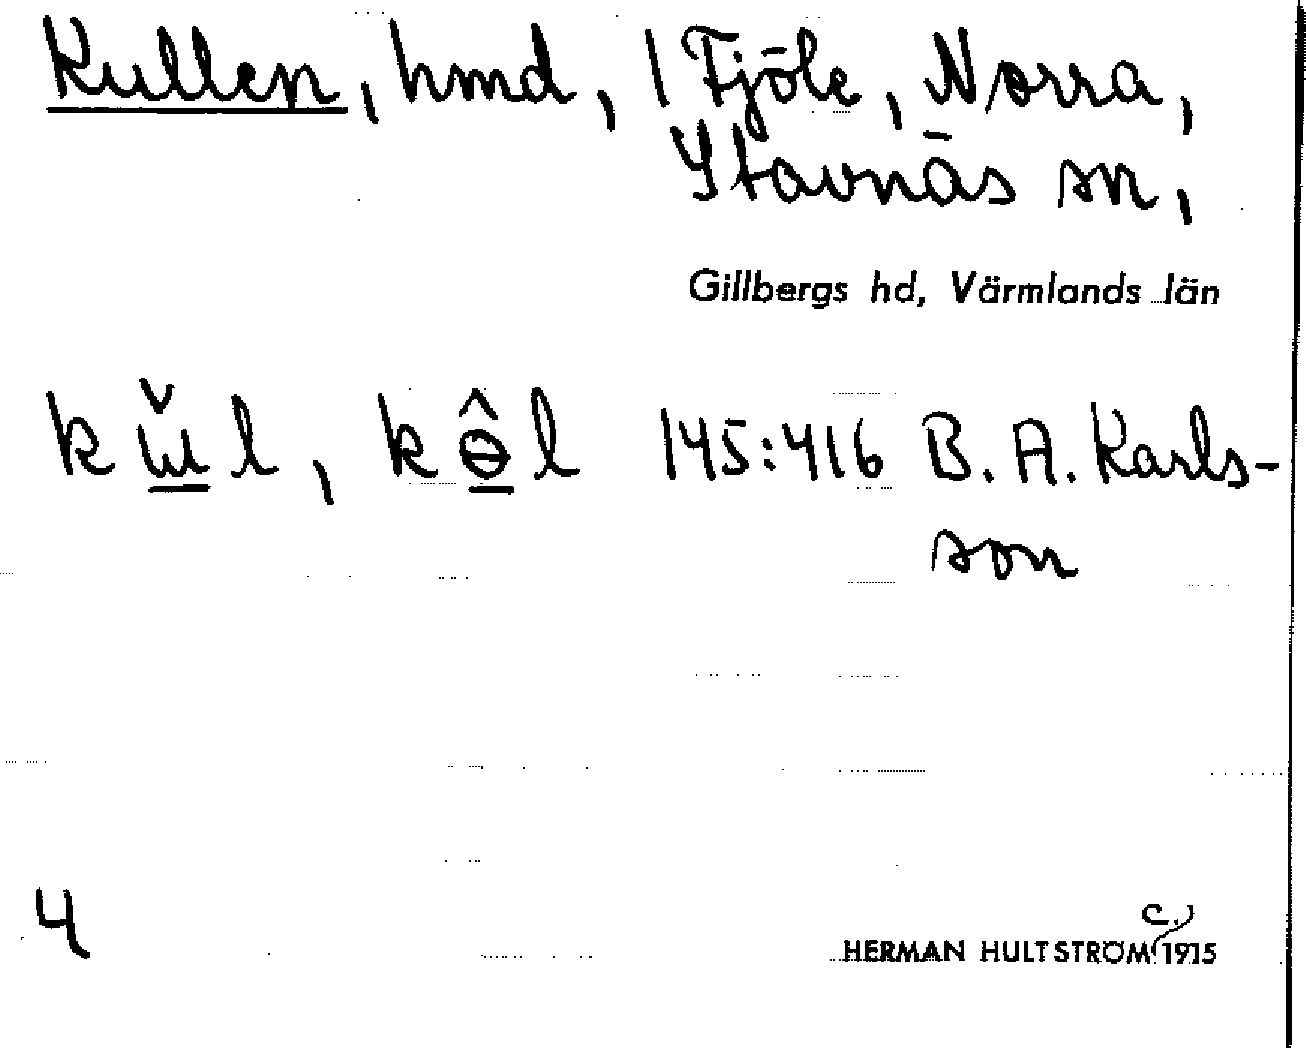 Kullen, hmd, 1 Fjöle, Norra,
Stavnäs sn,
Gillbergs hd, Värmlands län
145:416 B. A. Karls-
son
4
c.
HERMAN HULTSTRÖM 1915